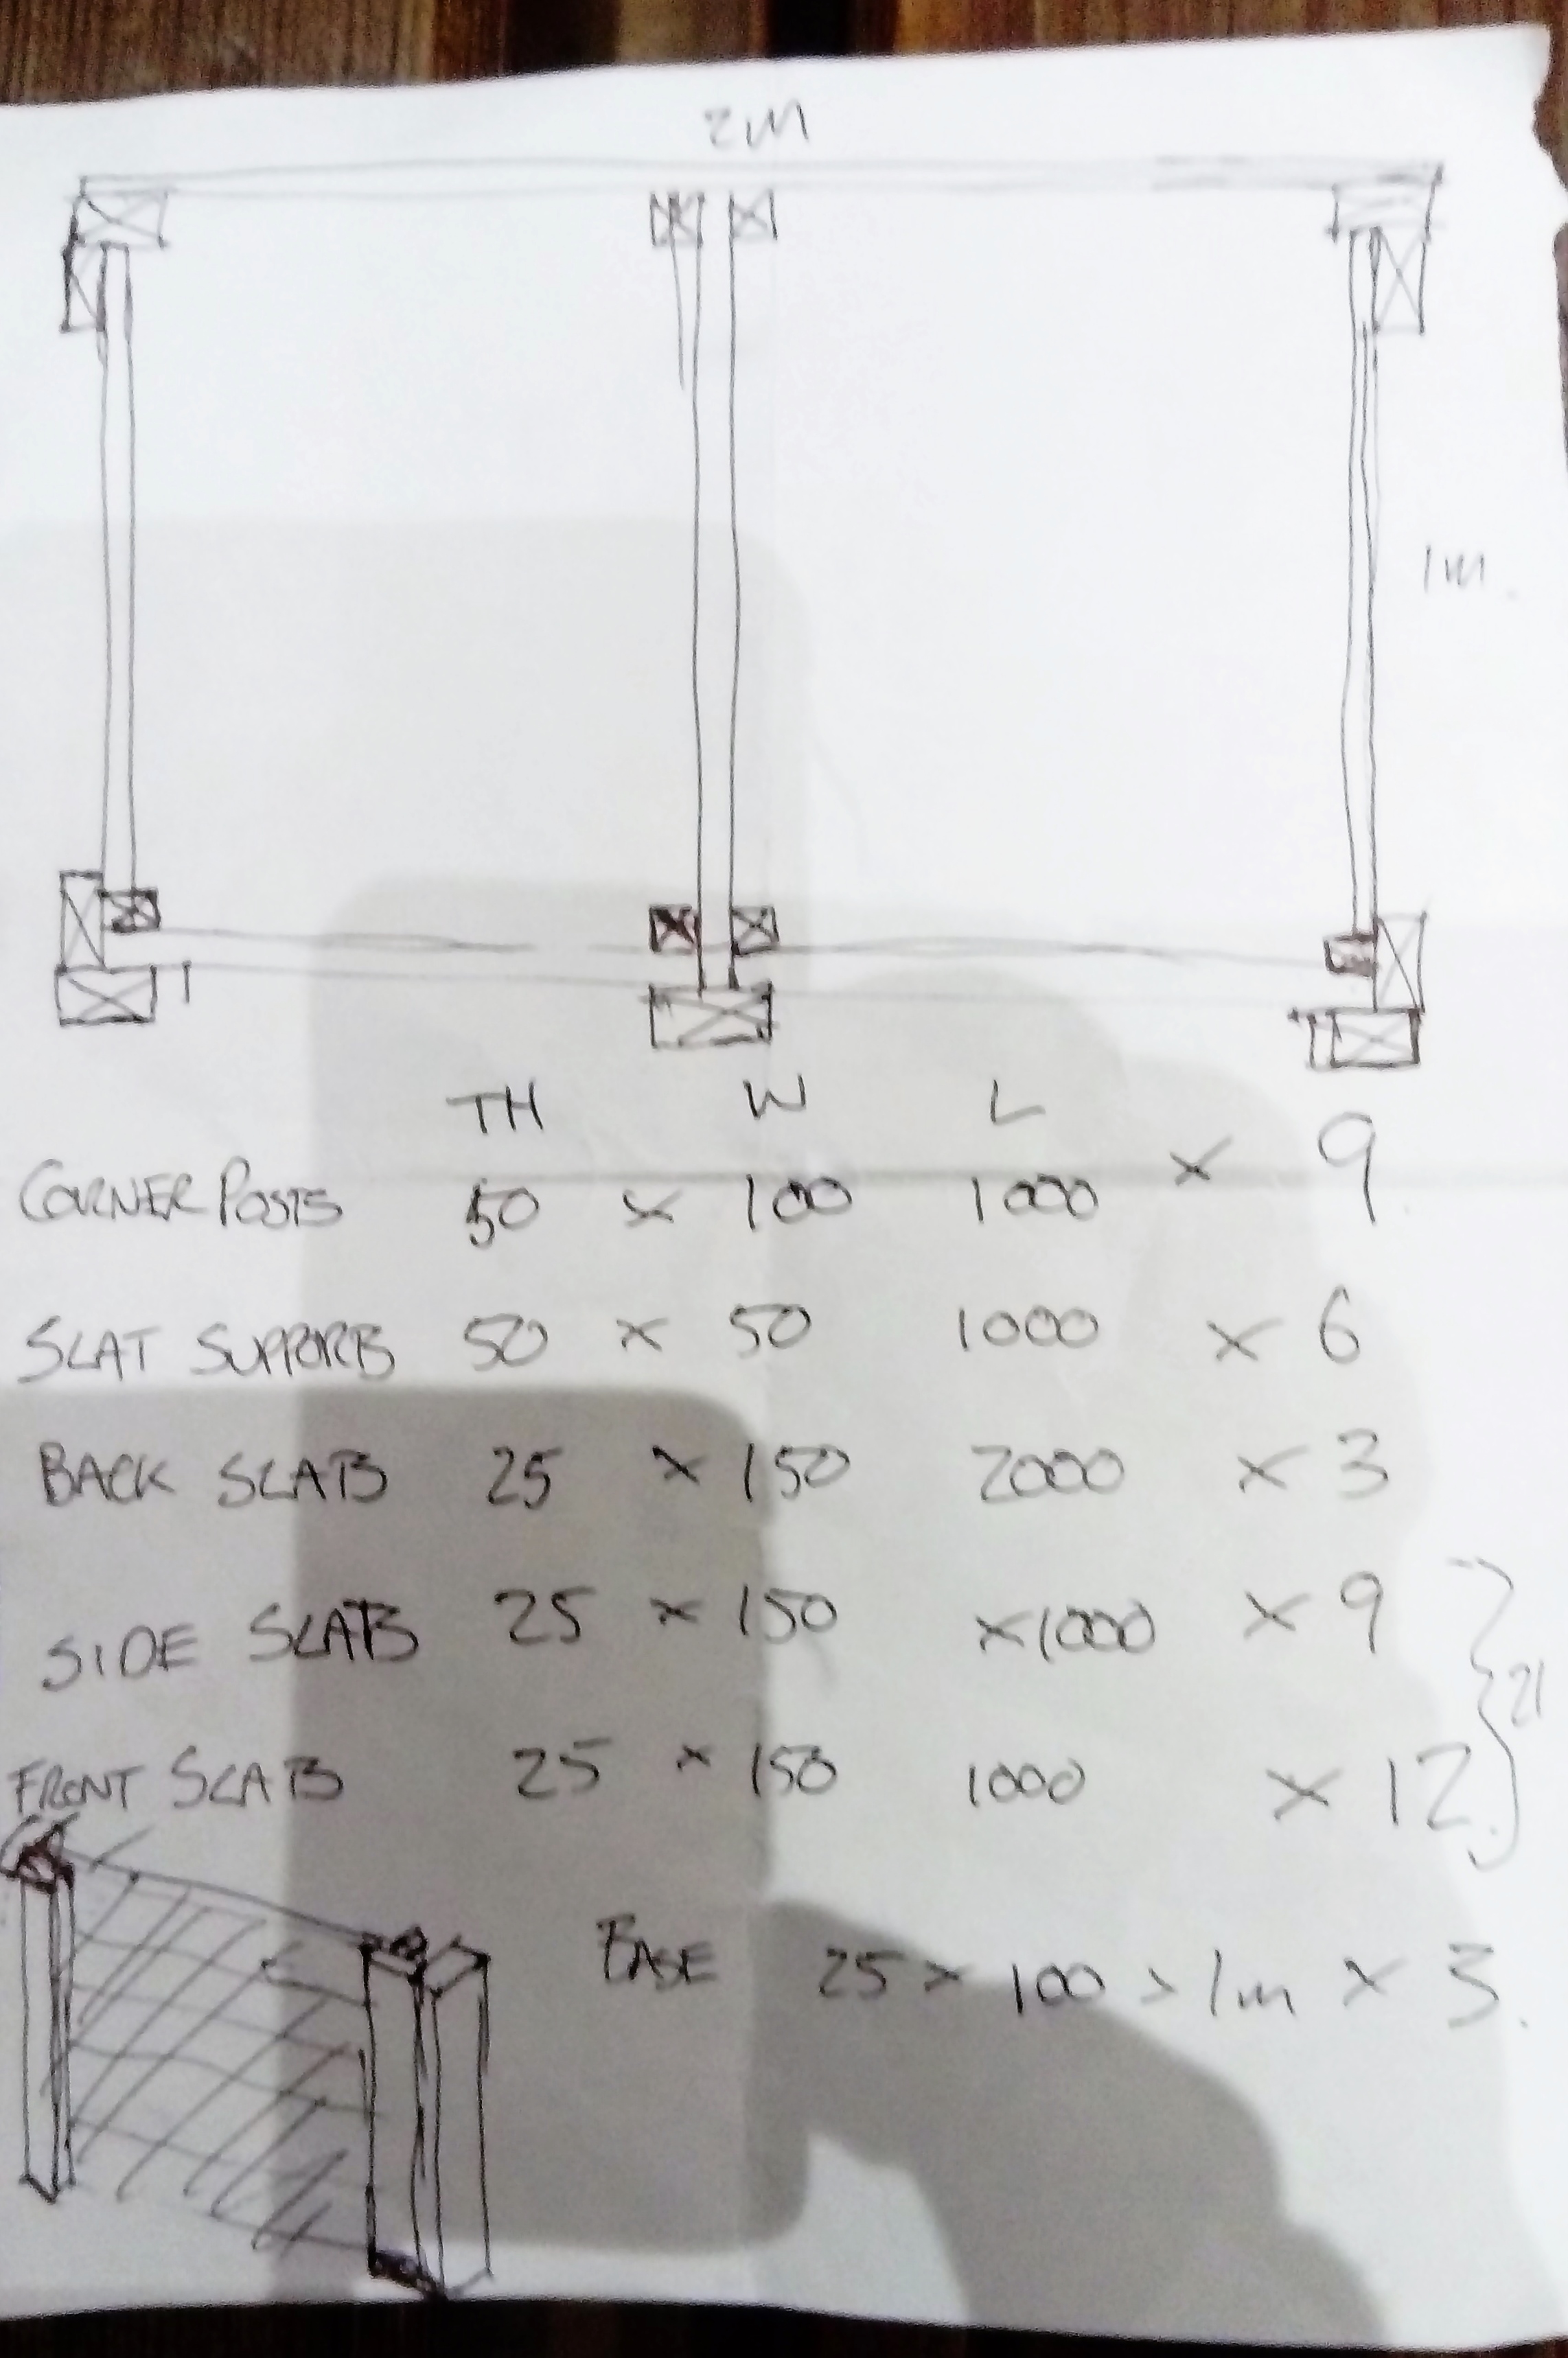 2M
1m.
TH W L
CORNER POSTS 50 x 100 1000 x 9
SLAT SUPPORTS 50 x 50 1000 x 6
BACK SLATS 25 x 150 2000 x 3
SIDE SLATS 25 x 150 x1000 x 9
21
FRONT SLATS 25 x 150 1000 x 12
BASE 25 x 100 x 1m x 3.